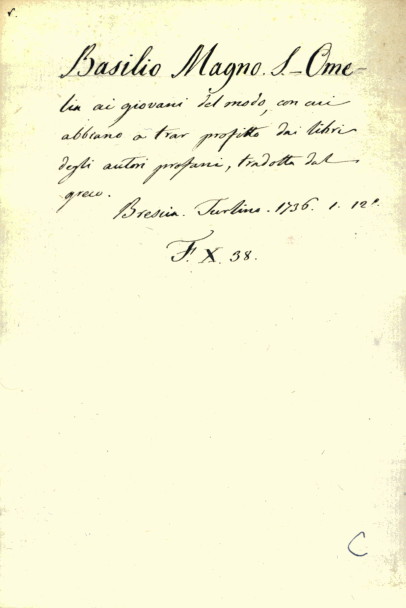 v.
Basilio Magno. S. – Ome-
lia ai giovani del modo, con cui
abbiano a trar profitto dai libri
degli autori profani, tradotta dal
greco.
Brescia. Turlino. 1736. 1. 12º.
F. X. 38.
C